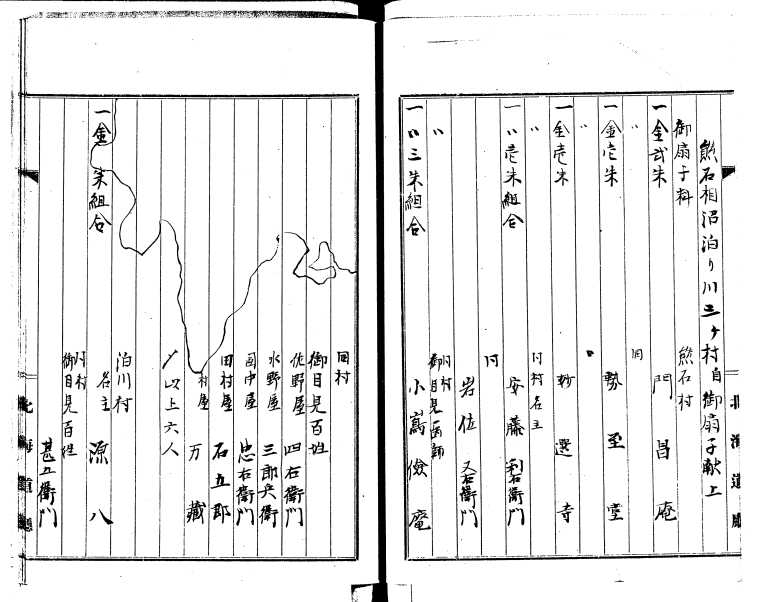 熊石相沼泊り川三ケ村自御扇子献上
御扇子料 熊石村
一金弐朱 門昌庵
〃 同
一金壱朱 勢至堂
〃 〃
一金壱朱 妙選寺
〃 同村名主
一〃壱朱組合 安藤利右衛門
同
岩佐又右衛門
〃 同村御目見医師
一〃三朱組合 小嶌俊庵
北海道廳
同村
御目見百姓
佐野屋 四右衛門
水野屋 三郎兵衛
田中屋 忠右衛門
田村屋 石五郎
村屋 万藏
〆以上六人
泊川村
一金 朱組合 名主 源八
同村
御目見百姓
甚五衛門
北海道廳